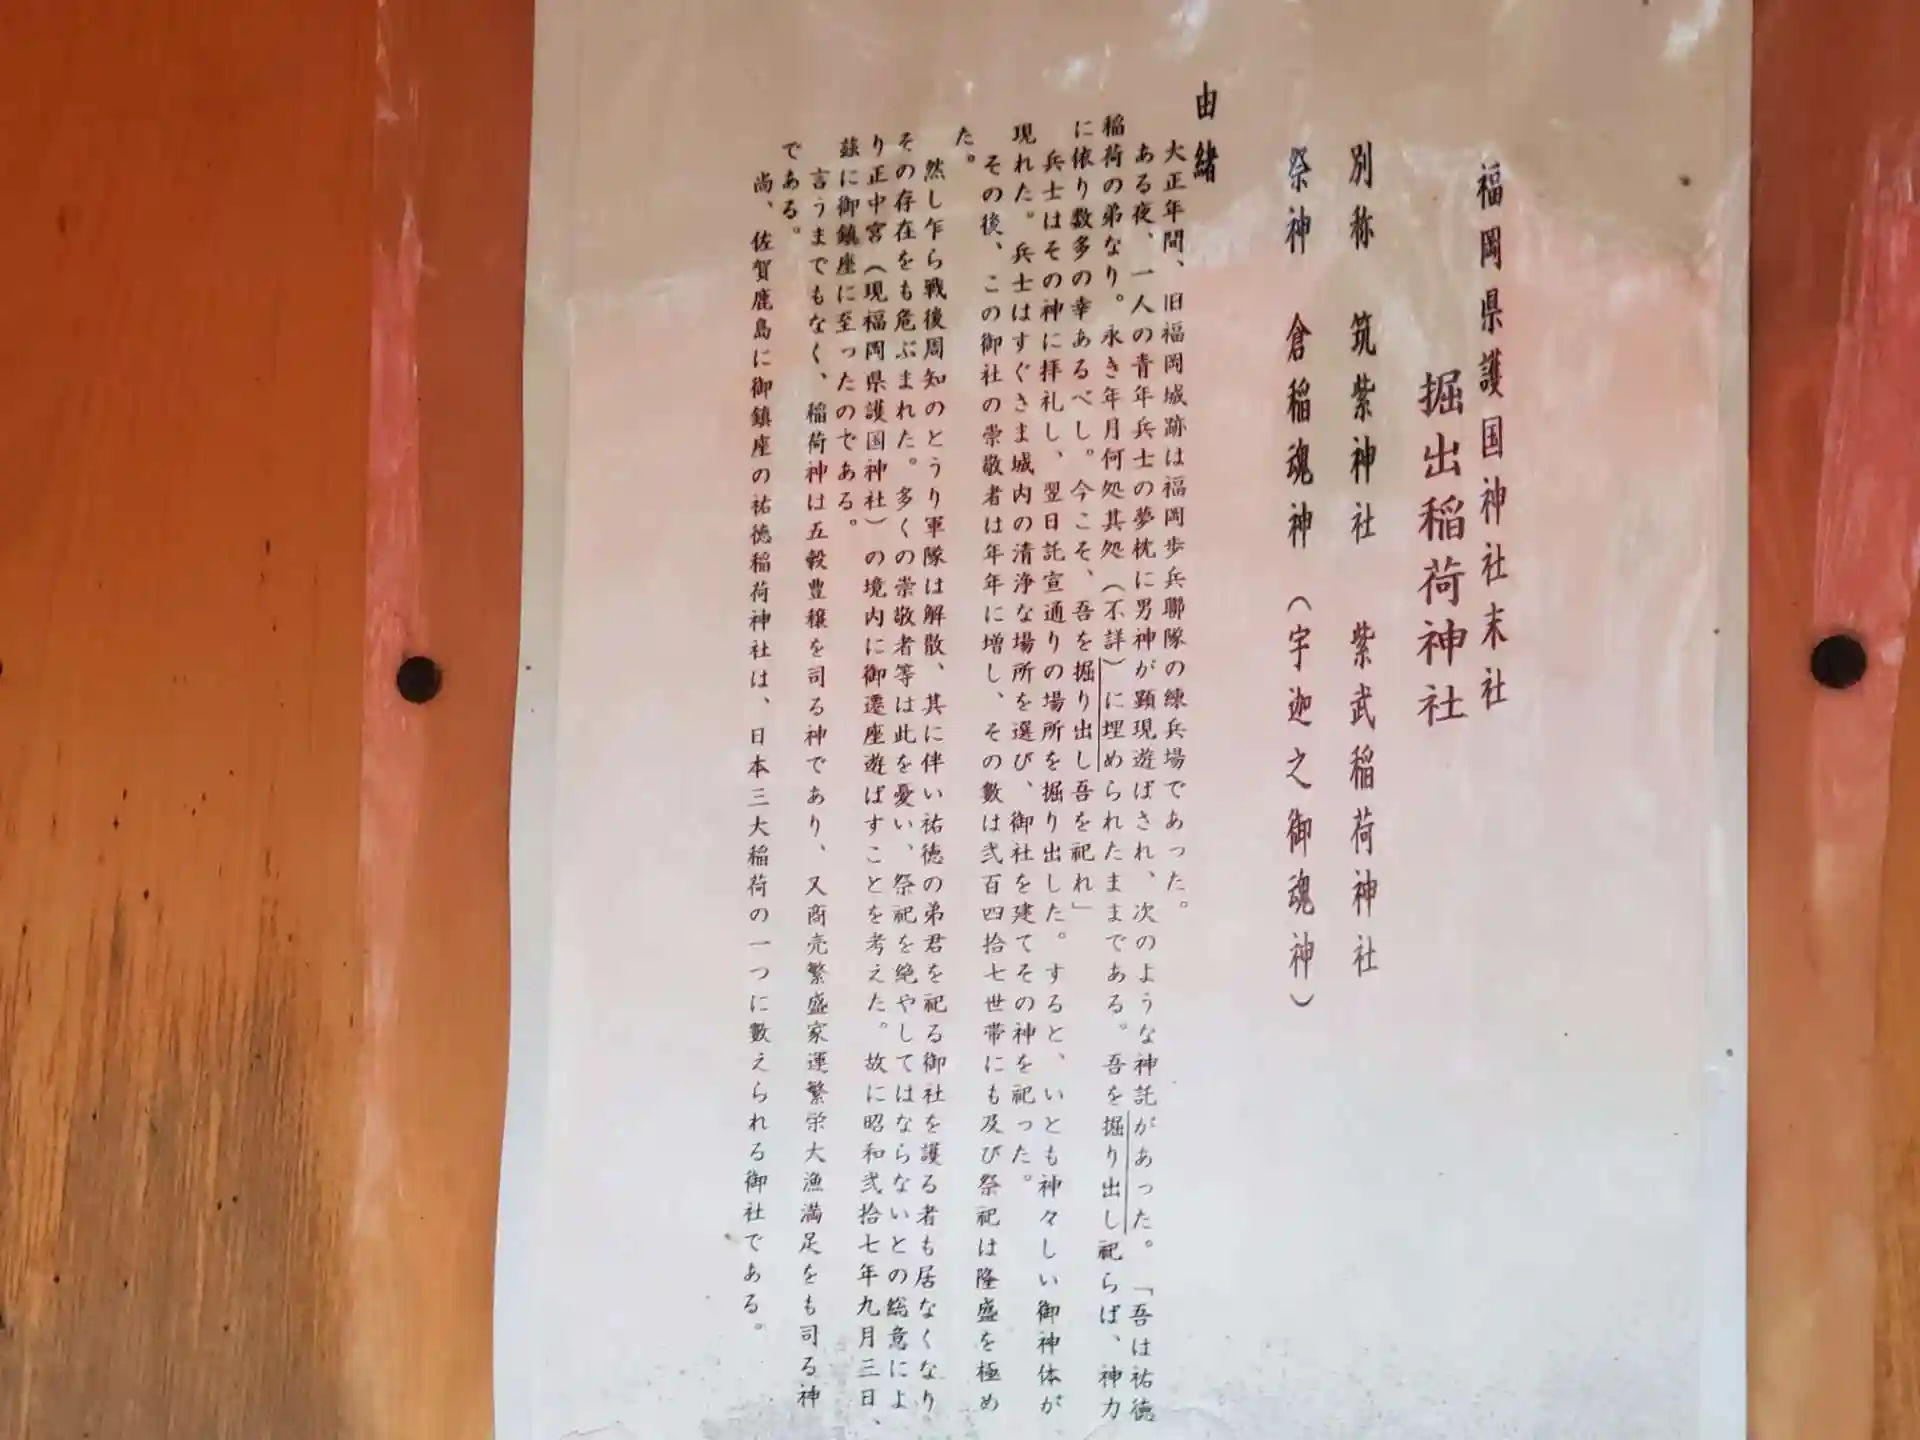 福岡県護国神社末社
掘出稲荷神社
別称 筑紫神社 紫武稲荷神社
祭神 倉稲魂神（宇迦之御魂神）
由緒
大正年間、旧福岡城跡は福岡歩兵聯隊の練兵場であった。
ある夜、一人の青年兵士の夢枕に男神が顕現遊ばされ、次のような神託があった。「吾は祐徳
稲荷の弟なり。永き年月何処其処（不詳）に埋められたままである。吾を掘り出し祀らば、神力
に依り数多の幸あるべし。今こそ、吾を掘り出し吾を祀れ」
兵士はその神に拝礼し、翌日託宣通りの場所を掘り出した。すると、いとも神々しい御神体が
現れた。兵士はすぐさま城内の清浄な場所を選び、御社を建てその神を祀った。
その後、この御社の崇敬者は年年に増し、その數は弐百四拾七世帯にも及び祭祀は隆盛を極め
た。
然し乍ら戦後周知のとうり軍隊は解散、其に伴い祐徳の弟君を祀る御社を護る者も居なくなり
その存在をも危ぶまれた。多くの崇敬者等は此を憂い、祭祀を絶やしてはならないとの総意によ
り正中宮（現福岡県護国神社）の境内に御遷座遊ばすことを考えた。故に昭和弐拾七年九月三日、
茲に御鎮座に至ったのである。
言うまでもなく、稲荷神は五穀豊穣を司る神であり、又商売繁盛家運繁栄大漁満足をも司る神
である。
尚、佐賀鹿島に御鎮座の祐徳稲荷神社は、日本三大稲荷の一つに數えられる御社である。